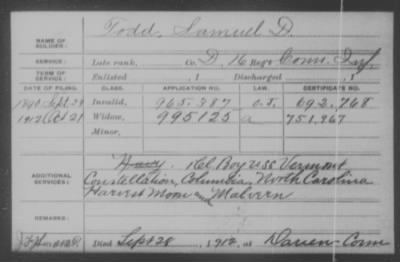 NAME OF SOLDIER: Todd, Samuel D.
SERVICE: Late rank, Co. D, 16 Reg't Conn. Inf.
TERM OF SERVICE: Enlisted , 1 Discharged , 1
DATE OF FILING. CLASS. APPLICATION NO. LAW. CERTIFICATE NO.
1890 Sept. 29 Invalid, 965.387 O.J. 692.768
1912 Oct 21 Widow, 995125 a 751.967
Minor,
ADDITIONAL SERVICES: Navy. 1 Cl. Boy U.S.S. Vermont
Constellation, Columbia, North Carolina
Harvest Moon and Malvern
REMARKS:
Died Sept 28, 1912, at Darien Conn